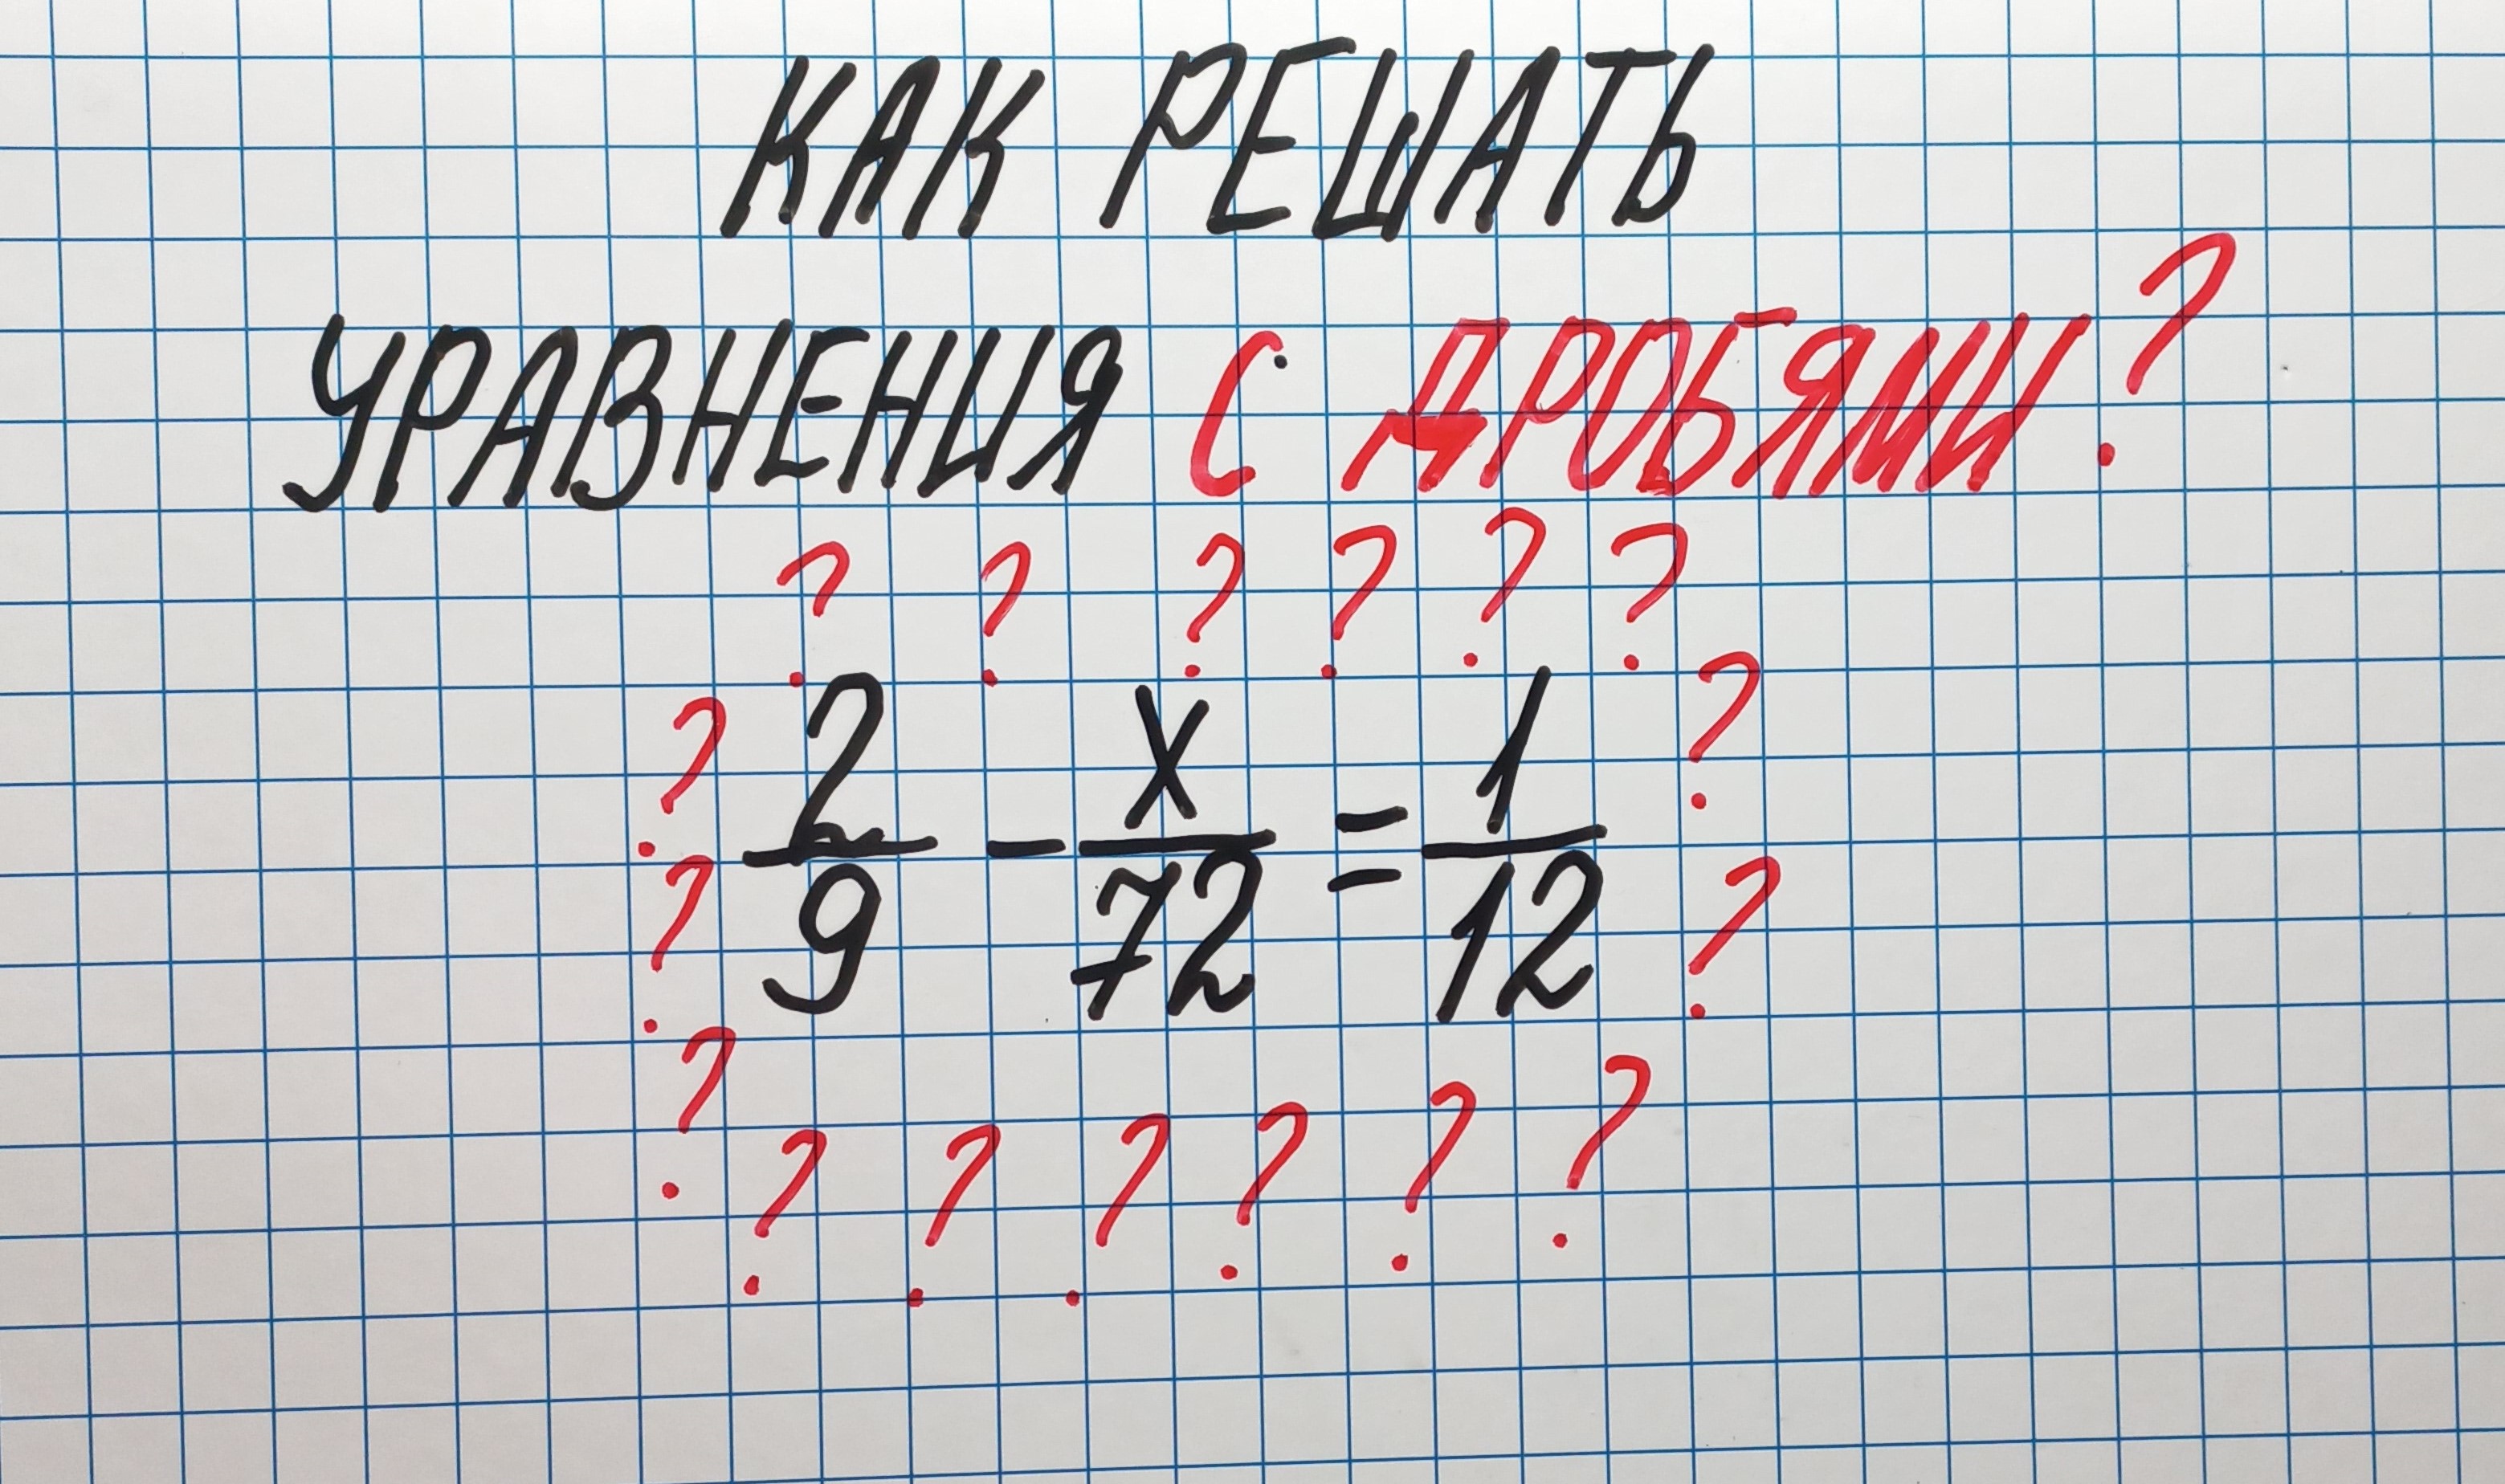 КАК РЕШАТЬ
УРАВНЕНИЯ С ДРОБЯМИ?
? ? ? ? ? ?
? 2/9 - x/72 = 1/12 ?
? ?
?
? ? ? ? ? ?